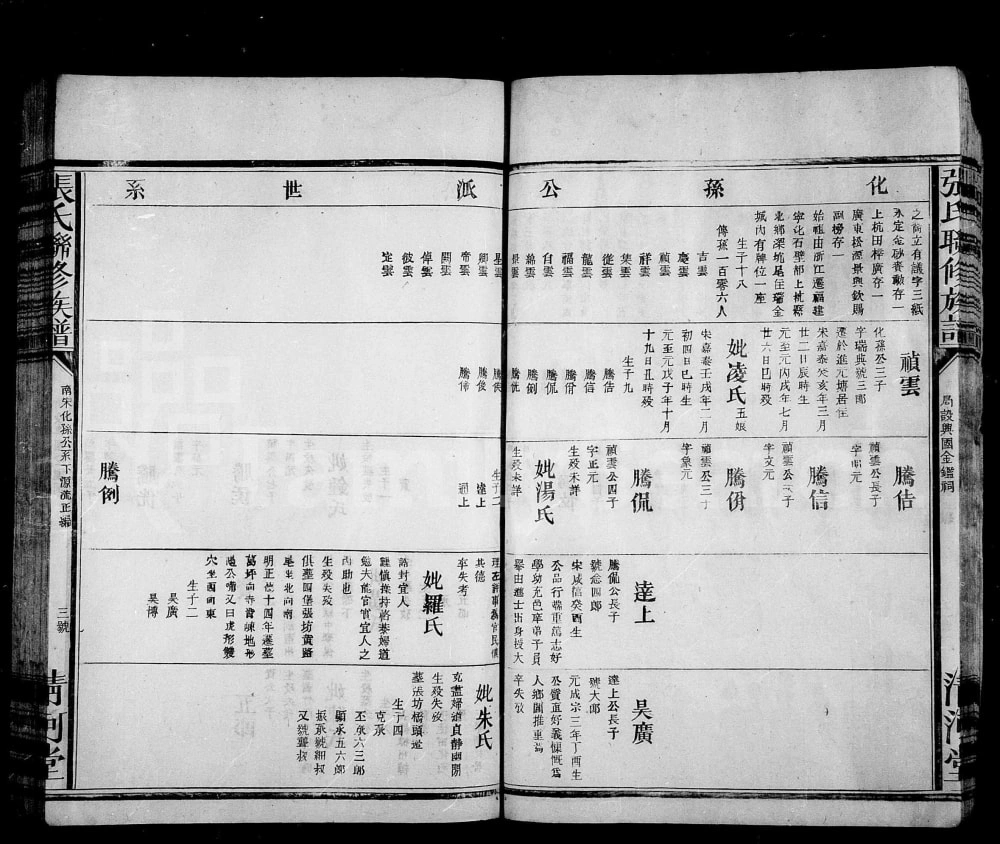 張氏聯修族譜
局設興國金鑑祠
清河堂
化孫公派世系
之前立有議字三紙
永定金砂賚勳存一
上杭田梓廣存一
廣東松源景興欽賜
副榜存一
始祖由浙江遷福建
寧化石壁都上杭縣
北鄉梁坑尾住瑞金
城內有牌位一座
生子十八
傳孫一百零六人
吉雲
慶雲
禎雲
祥雲
集雲
從雲
龍雲
福雲
自雲
錦雲
景雲
星雲
卿雲
帝雲
開雲
倬雲
彼雲
定雲
禎雲
化孫公三子
字瑞興號三郎
遷於進元塘居住
宋嘉泰癸亥年三月
廿二日辰時生
元至元丙戌年七月
廿六日巳時歿
妣凌氏五娘
宋嘉泰壬戌年二月
初四日巳時生
元至元戊子年十月
十九日丑時歿
生子九
騰佶
騰信
騰佾
騰侃
騰例
騰侊
騰俟
騰俊
騰俙
騰佶
禎雲公長子
騰信
禎雲公次子
字文元
騰佾
禎雲公三子
字象元
騰侃
禎雲公四子
字正元
生歿未詳
妣湯氏
生歿未詳
生子二
達上
通上
騰例
達上
騰侃公長子
號念四郎
宋咸信癸酉生
公品行端重萬志好
學幼充邑庠弟子員
舉由進士出身授大
其德
卒失考
妣羅氏
誥封宜人
謹慎操持恪榮婦道
勉夫能官官宜人之
內助也
生歿失歿
俱墓四堡張坊黃路
尾坐北向南
明正德十四年遷墓
葛坪向寺背練地形
愚公嘴又曰虎形雙
穴坐酉向東
生子二
吴廣
吴博
吴廣
達上公長子
號大郎
元成宗三年丁酉生
公賢直好義慷慨為
人鄉閭推重焉
卒失歿
妣朱氏
克盡婦道貞靜幽閒
生歿失歿
墓張坊橋頭墟
生子四
克承
丕承六三郎
顯承五六郎
振承號細叔
又號聾叔
張氏聯修族譜
南宋化孫公系下源流正編
三號
清河堂